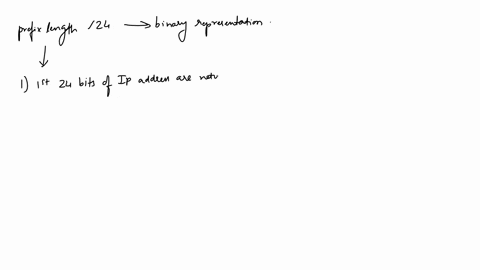 prefix length /24 → binary representation.
↓
1) 1st 24 bits of Ip addren are netv